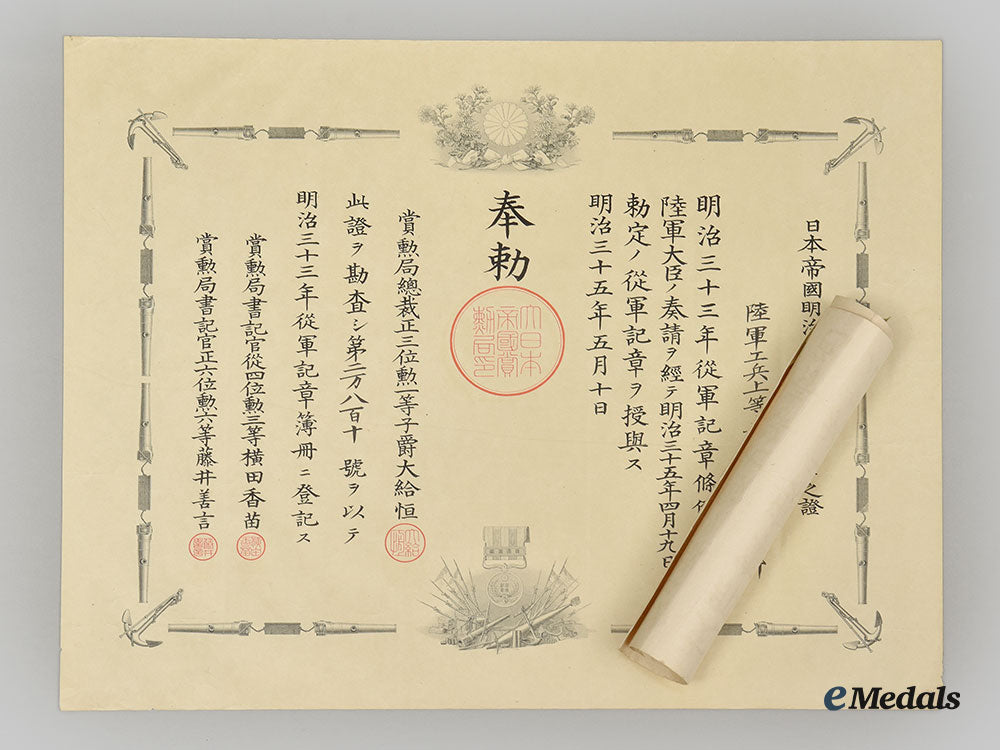 日本帝國明治
之證
陸軍工兵上等
明治三十三年從軍記章條
陸軍大臣ノ奏請ヲ經テ明治三十五年四月十九日
勅定ノ從軍記章ヲ授與ス
明治三十五年五月十日
奉勅
大日本
帝國賞
勳局印
賞勳局總裁正三位勲一等子爵大給恒
此證ヲ勘査シ第二万八百十號ヲ以テ
明治三十三年從軍記章簿冊ニ登記ス
賞勲局書記官從四位勲三等横田香苗
賞勲局書記官正六位勲六等藤井善言
eMedals